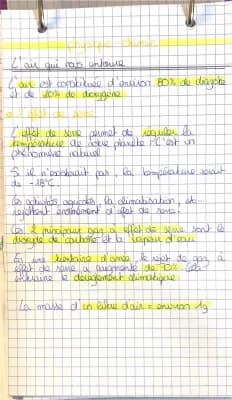 Physique Chimie
L'air qui nous entoure
L'air est constituée d'environ 80% de diazote
et de 20% de dioxygène
L'effet de serre
L'effet de serre permet de réguler la
température de notre planète. C'est un
phénomène naturel
S'il n'existerait pas, la température serait
de -18°C
Les activités agricoles, la climatisation, etc...
rejettent énormément d'effet de serre.
Les 2 principaux gaz à effet de serre sont le
dioxyde de carbone et la vapeur d'eau
En une trentaine d'année, le rejet de gaz à
effet de serre a augmenté de 70%. Cela
entraîne le dérèglement climatique
La masse d'un litre d'air = environ 1g